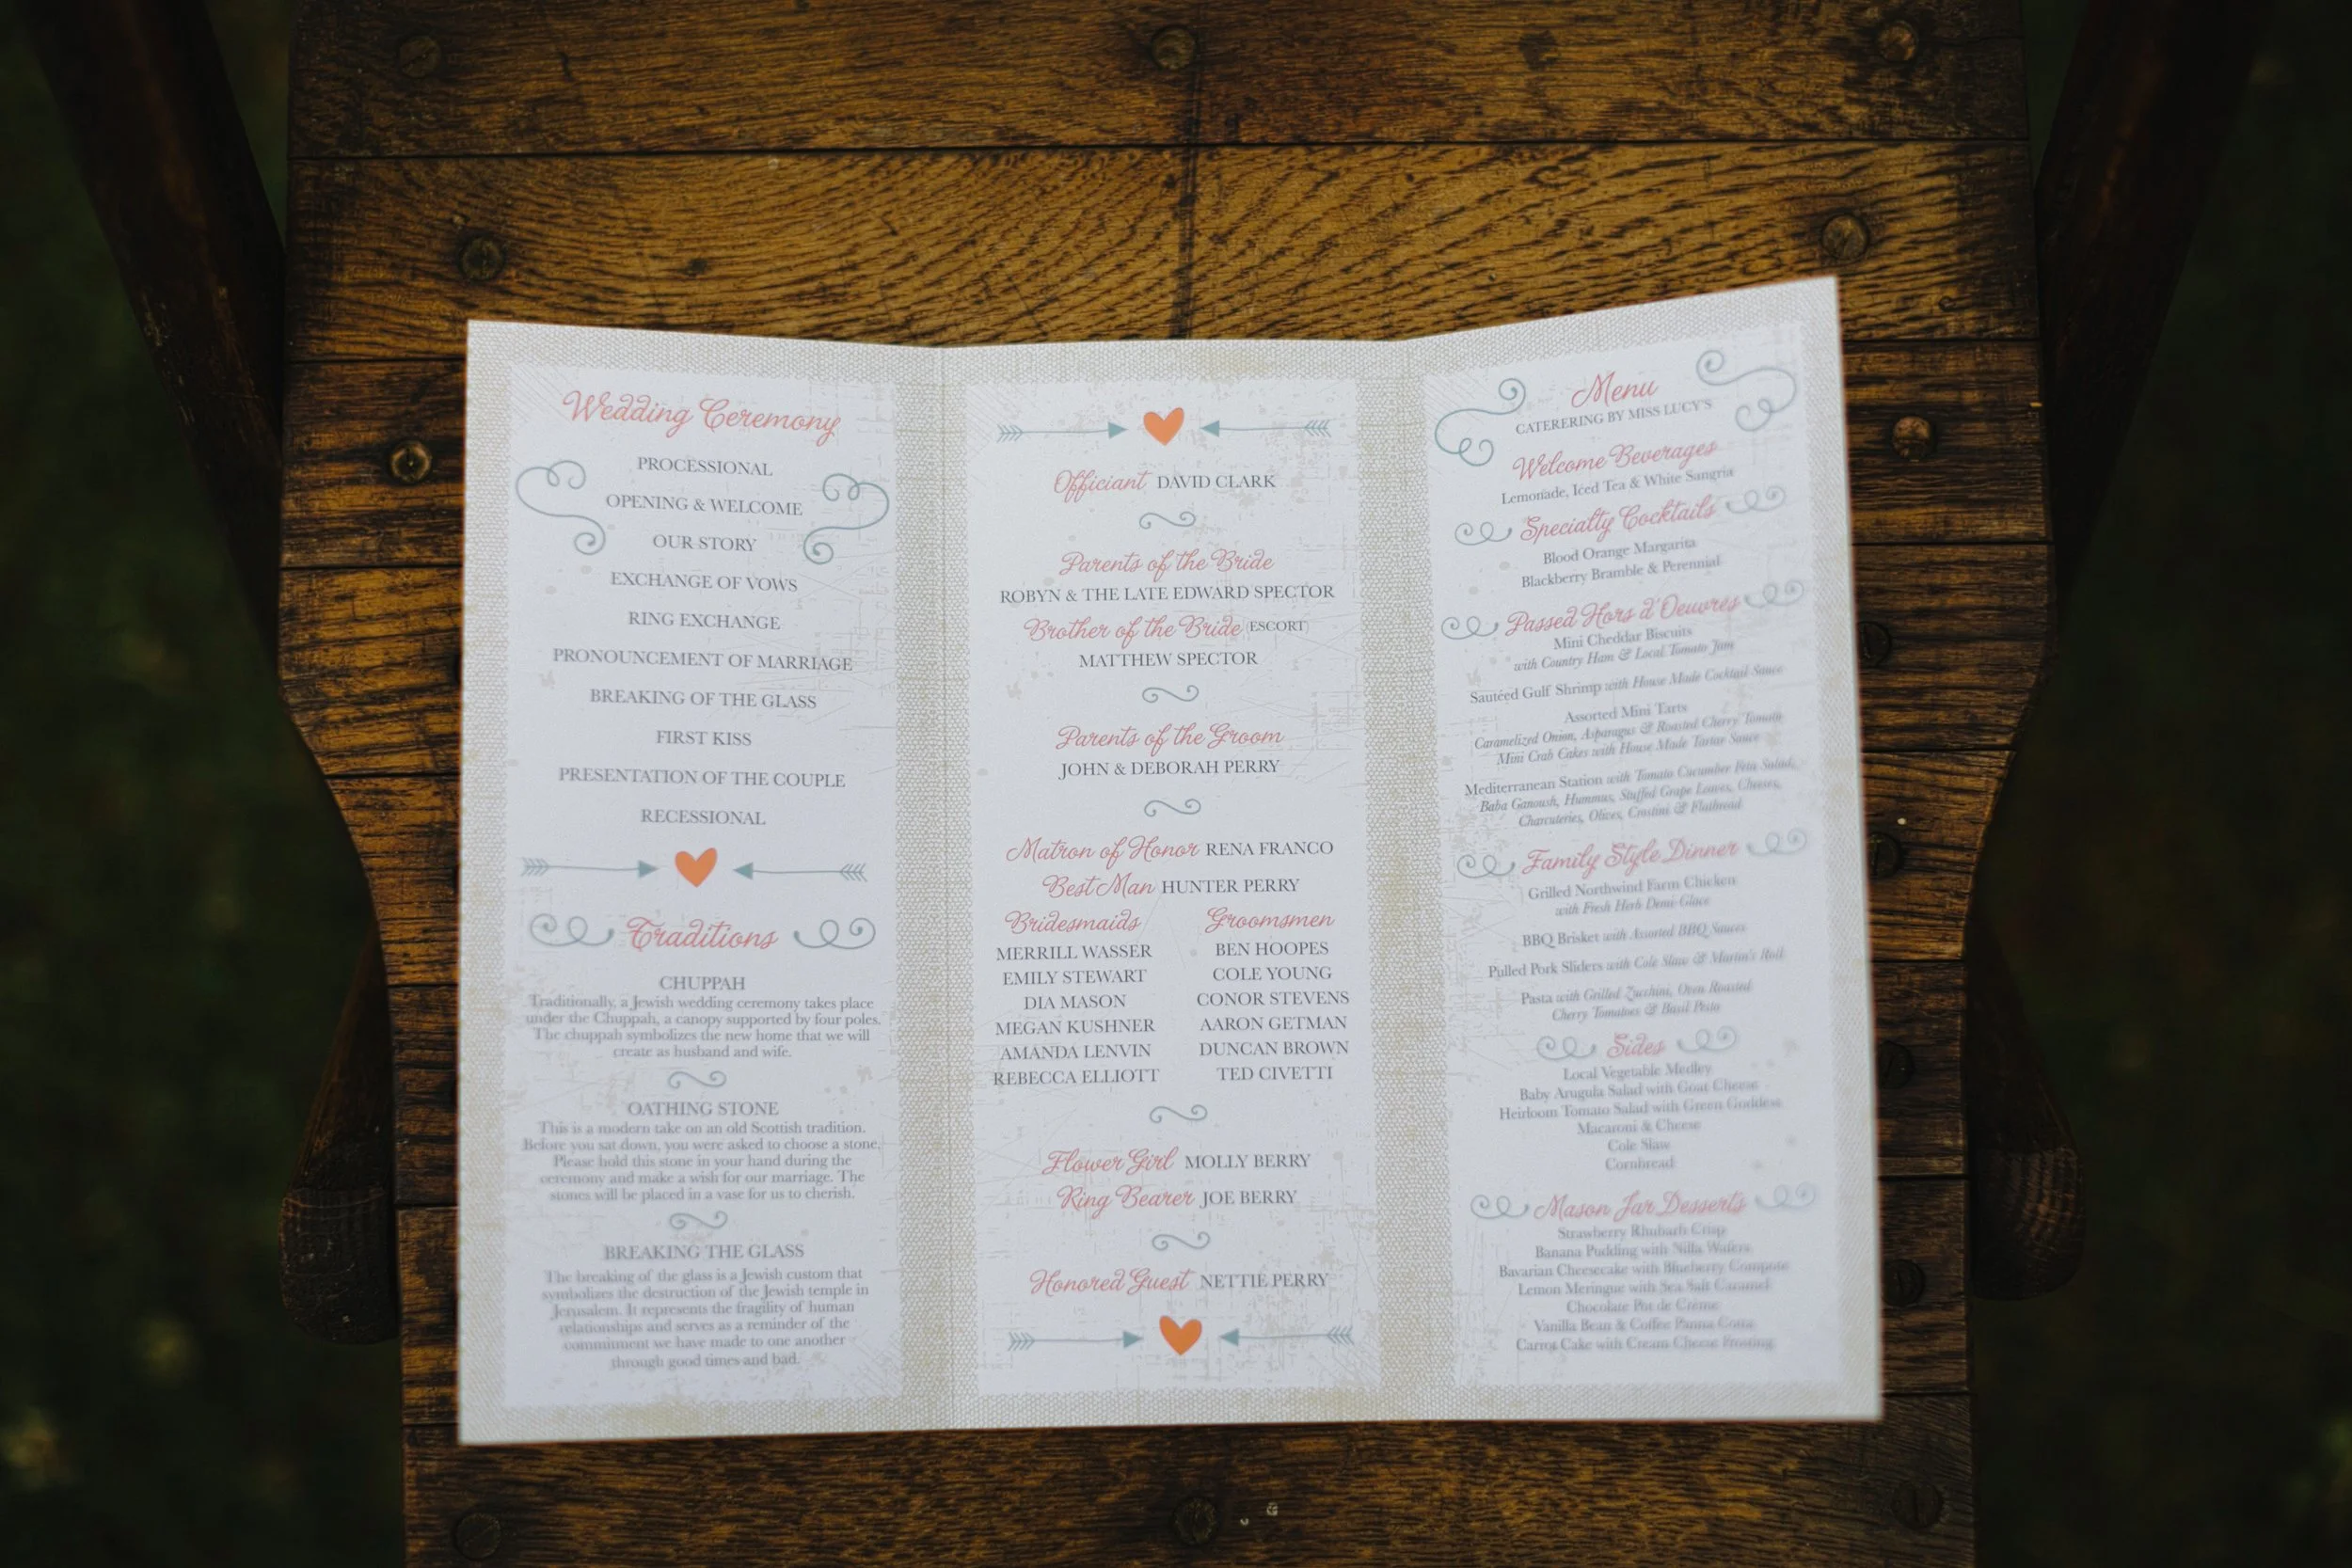 Wedding Ceremony
PROCESSIONAL
OPENING & WELCOME
OUR STORY
EXCHANGE OF VOWS
RING EXCHANGE
PRONOUNCEMENT OF MARRIAGE
BREAKING OF THE GLASS
FIRST KISS
PRESENTATION OF THE COUPLE
RECESSIONAL
Traditions
CHUPPAH
Traditionally, a Jewish wedding ceremony takes place
under the Chuppah, a canopy supported by four poles.
The chuppah symbolizes the new home that we will
create as husband and wife.
OATHING STONE
This is a modern take on an old Scottish tradition.
Before you sat down, you were asked to choose a stone.
Please hold this stone in your hand during the
ceremony and make a wish for our marriage. The
stones will be placed in a vase for us to cherish.
BREAKING THE GLASS
The breaking of the glass is a Jewish custom that
symbolizes the destruction of the Jewish temple in
Jerusalem. It represents the fragility of human
relationships and serves as a reminder of the
commitment we have made to one another
through good times and bad.
Officiant DAVID CLARK
Parents of the Bride
ROBYN & THE LATE EDWARD SPECTOR
Brother of the Bride (ESCORT)
MATTHEW SPECTOR
Parents of the Groom
JOHN & DEBORAH PERRY
Matron of Honor RENA FRANCO
Best Man HUNTER PERRY
Bridesmaids
MERRILL WASSER
EMILY STEWART
DIA MASON
MEGAN KUSHNER
AMANDA LENVIN
REBECCA ELLIOTT
Groomsmen
BEN HOOPES
COLE YOUNG
CONOR STEVENS
AARON GETMAN
DUNCAN BROWN
TED CIVETTI
Flower Girl MOLLY BERRY
Ring Bearer JOE BERRY
Honored Guest NETTIE PERRY
Menu
CATERERING BY MISS LUCY'S
Welcome Beverages
Lemonade, Iced Tea & White Sangria
Specialty Cocktails
Blood Orange Margarita
Blackberry Bramble & Perennial
Passed Hors d'Oeuvres
Mini Cheddar Biscuits
with Country Ham & Local Tomato Jam
Sautéed Gulf Shrimp with House Made Cocktail Sauce
Assorted Mini Tarts
Caramelized Onion, Asparagus & Roasted Cherry Tomato
Mini Crab Cakes with House Made Tartar Sauce
Mediterranean Station with Tomato Cucumber Feta Salad,
Baba Ganoush, Hummus, Stuffed Grape Leaves, Cheeses,
Charcuteries, Olives, Crostini & Flatbread
Family Style Dinner
Grilled Northwind Farm Chicken
with Fresh Herb Demi-Glace
BBQ Brisket with Assorted BBQ Sauces
Pulled Pork Sliders with Cole Slaw & Martin's Roll
Pasta with Grilled Zucchini, Oven Roasted
Cherry Tomatoes & Basil Pesto
Sides
Local Vegetable Medley
Baby Arugula Salad with Goat Cheese
Heirloom Tomato Salad with Green Goddess
Macaroni & Cheese
Cole Slaw
Cornbread
Mason Jar Desserts
Strawberry Rhubarb Crisp
Banana Pudding with Nilla Wafers
Bavarian Cheesecake with Blueberry Compote
Lemon Meringue with Sea Salt Caramel
Chocolate Pot de Crème
Vanilla Bean & Coffee Panna Cotta
Carrot Cake with Cream Cheese Frosting